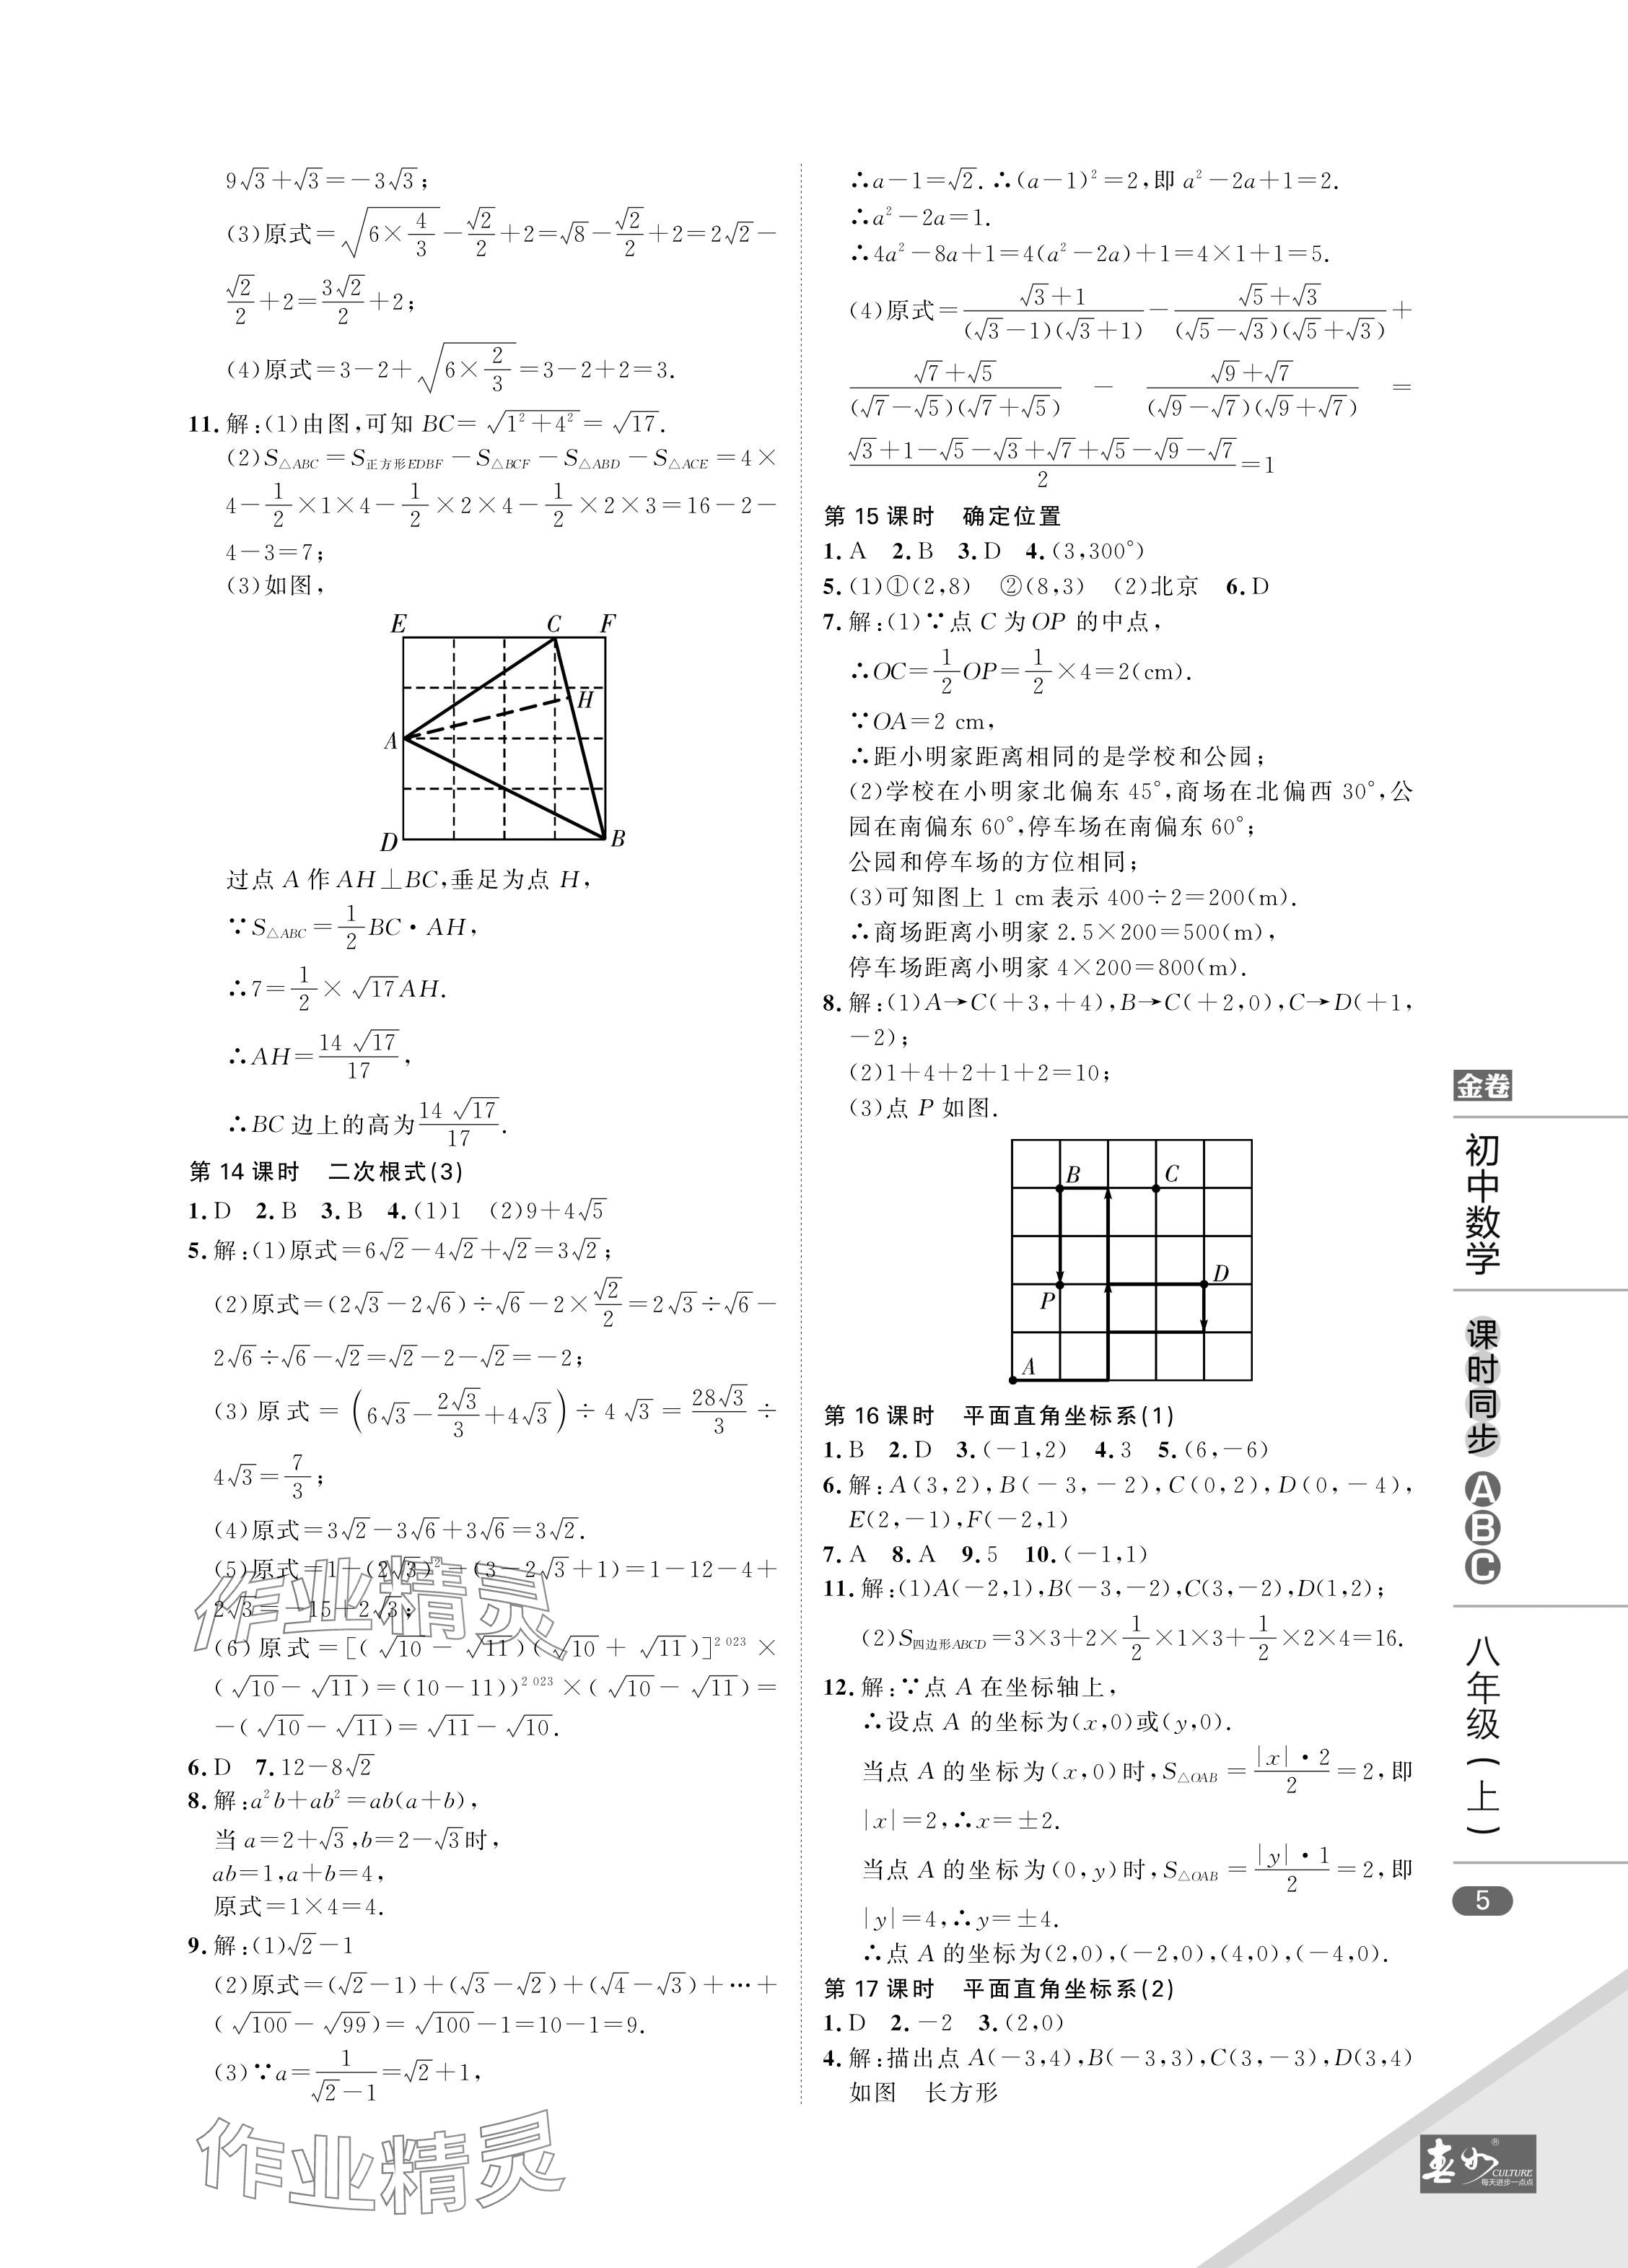 9√3+√3=-3√3;
(3)原式=√(6×4/3)-√2/2+2=√8-√2/2+2=2√2-
√2/2+2=3√2/2+2;
(4)原式=3-2+√(6×2/3)=3-2+2=3.
11.解:(1)由图,可知 BC=√(1²+4²)=√17.
(2)S△ABC=S正方形EDBF-S△BCF-S△ABD-S△ACE=4×
4-1/2×1×4-1/2×2×4-1/2×2×3=16-2-
4-3=7;
(3)如图,
E C F
H
A
D B
过点 A 作 AH⊥BC,垂足为点 H,
∵S△ABC=1/2BC·AH,
∴7=1/2×√17AH.
∴AH=14√17/17,
∴BC 边上的高为14√17/17.
第 14 课时 二次根式(3)
1.D 2.B 3.B 4.(1)1 (2)9+4√5
5.解:(1)原式=6√2-4√2+√2=3√2;
(2)原式=(2√3-2√6)÷√6-2×√2/2=2√3÷√6-
2√6÷√6-√2=√2-2-√2=-2;
(3)原式=(6√3-2√3/3+4√3)÷4√3=28√3/3÷
4√3=7/3;
(4)原式=3√2-3√6+3√6=3√2.
(5)原式=1-(2√3)²-(3-2√3+1)=1-12-4+
2√3=-15+2√3;
(6)原式=[(√10-√11)(√10+√11)]²⁰²³×
(√10-√11)=(10-11))²⁰²³×(√10-√11)=
-(√10-√11)=√11-√10.
6.D 7.12-8√2
8.解:a²b+ab²=ab(a+b),
当 a=2+√3,b=2-√3时,
ab=1,a+b=4,
原式=1×4=4.
9.解:(1)√2-1
(2)原式=(√2-1)+(√3-√2)+(√4-√3)+…+
(√100-√99)=√100-1=10-1=9.
(3)∵a=1/(√2-1)=√2+1,
∴a-1=√2.∴(a-1)²=2,即 a²-2a+1=2.
∴a²-2a=1.
∴4a²-8a+1=4(a²-2a)+1=4×1+1=5.
(4)原式=(√3+1)/((√3-1)(√3+1))-(√5+√3)/((√5-√3)(√5+√3))+
(√7+√5)/((√7-√5)(√7+√5))-(√9+√7)/((√9-√7)(√9+√7))=
(√3+1-√5-√3+√7+√5-√9-√7)/2=1
第 15 课时 确定位置
1.A 2.B 3.D 4.(3,300°)
5.(1)①(2,8) ②(8,3) (2)北京 6.D
7.解:(1)∵点 C 为 OP 的中点,
∴OC=1/2OP=1/2×4=2(cm).
∵OA=2 cm,
∴距小明家距离相同的是学校和公园;
(2)学校在小明家北偏东 45°,商场在北偏西 30°,公
园在南偏东 60°,停车场在南偏东 60°;
公园和停车场的方位相同;
(3)可知图上 1 cm 表示 400÷2=200(m).
∴商场距离小明家 2.5×200=500(m),
停车场距离小明家 4×200=800(m).
8.解:(1)A→C(+3,+4),B→C(+2,0),C→D(+1,
-2);
(2)1+4+2+1+2=10;
(3)点 P 如图.
B C
D
P
A
第 16 课时 平面直角坐标系(1)
1.B 2.D 3.(-1,2) 4.3 5.(6,-6)
6.解:A(3,2),B(-3,-2),C(0,2),D(0,-4),
E(2,-1),F(-2,1)
7.A 8.A 9.5 10.(-1,1)
11.解:(1)A(-2,1),B(-3,-2),C(3,-2),D(1,2);
(2)S四边形ABCD=3×3+2×1/2×1×3+1/2×2×4=16.
12.解:∵点 A 在坐标轴上,
∴设点 A 的坐标为(x,0)或(y,0).
当点 A 的坐标为(x,0)时,S△OAB=|x|·2/2=2,即
|x|=2,∴x=±2.
当点 A 的坐标为(0,y)时,S△OAB=|y|·1/2=2,即
|y|=4,∴y=±4.
∴点 A 的坐标为(2,0),(-2,0),(4,0),(-4,0).
第 17 课时 平面直角坐标系(2)
1.D 2.-2 3.(2,0)
4.解:描出点 A(-3,4),B(-3,3),C(3,-3),D(3,4)
如图 长方形
金卷
初中数学
课时同步
ABC
八年级(上)
5
作业精灵
作业精灵
春如®
CULTURE
每天进步一点点